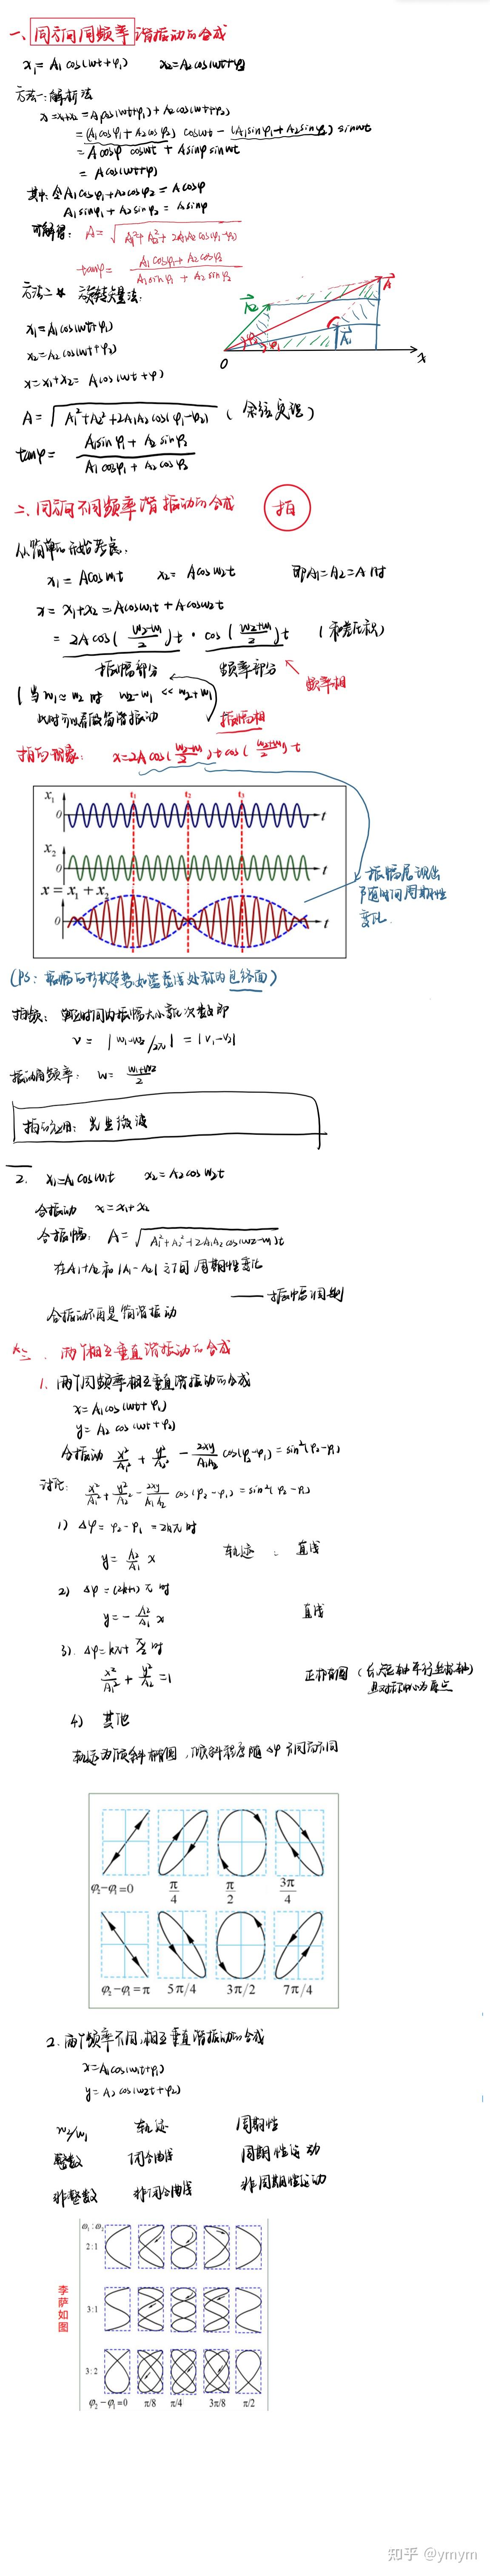 一、同方向同频率谐振动的合成
x₁= A₁cos(ωt+φ₁)  x₂=A₂cos(ωt+φ₂)
方法一:解析法
x=x₁+x₂=A₁cos(ωt+φ₁)+A₂cos(ωt+φ₂)
=(A₁cosφ₁+A₂cosφ₂) cosωt-(A₁sinφ₁+A₂sinφ₂) sinωt
=Acosφ cosωt + Asinφ sinωt
= Acos(ωt+φ)
其中:令A₁cosφ₁+A₂cosφ₂=Acosφ
A₁sinφ₁+A₂sinφ₂=Asinφ
可解得: A=√(A₁²+A₂²+2A₁A₂cos(φ₁-φ₂))
tanφ= (A₁cosφ₁+A₂cosφ₂)/(A₁sinφ₁+A₂sinφ₂)
方法二* 旋转矢量法:
A₂ A A₁ φ₂ φ₁ O x
x₁=A₁cos(ωt+φ₁)
x₂=A₂cos(ωt+φ₂)
x=x₁+x₂= Acos(ωt+φ)
A=√(A₁²+A₂²+2A₁A₂cos(φ₁-φ₂)) (余弦定理)
tanφ= (A₁sinφ₁+A₂sinφ₂)/(A₁cosφ₁+A₂cosφ₂)
二、同方向不同频率谐振动的合成 拍
从简单的开始考虑:
x₁=Acosω₁t  x₂=Acosω₂t  即A₁=A₂=A时
x=x₁+x₂=Acosω₁t+Acosω₂t
=2Acos((ω₂-ω₁)/2)t·cos((ω₂+ω₁)/2)t (和差化积)
振幅部分 频率部分
频率相
(当ω₁≈ω₂时 ω₂-ω₁<<ω₂+ω₁)
此时可以看做简谐振动 振幅相
拍的现象: x=2Acos((ω₂-ω₁)/2)t cos((ω₂+ω₁)/2)t
x₁ 0 t₁ t₂ t₃ t
x₂ 0 t
x = x₁ + x₂
0 t
振幅展现出
随时间周期性
变化
(PS:振幅的形状趋势如蓝虚线处称为包络面)
拍频: 单位时间内振幅大小变化次数即
ν=|ω₁-ω₂/2π|=|ν₁-ν₂|
振动角频率: ω=(ω₁+ω₂)/2
拍的应用:
2. x₁=A₁cosω₁t  x₂=A₂cosω₂t
合振动 x=x₁+x₂
合振幅: A=√(A₁²+A₂²+2A₁A₂cos(ω₂-ω₁)t)
在A₁+A₂和|A₁-A₂|之间周期性变化
——振幅调制
合振动不再是简谐振动
*三、两个相互垂直谐振动的合成
1. 两个同频率相互垂直谐振动的合成
x=A₁cos(ωt+φ₁)
y=A₂cos(ωt+φ₂)
合振动 x²/A₁²+y²/A₂²-2xy/A₁A₂ cos(φ₂-φ₁)=sin²(φ₂-φ₁)
讨论: x²/A₁²+y²/A₂²-2xy/A₁A₂ cos(φ₂-φ₁)=sin²(φ₂-φ₁)
1) Δφ=φ₂-φ₁=2kπ时
y=A₂/A₁ x 轨迹: 直线
2) Δφ=(2k+1)π时
y=-A₂/A₁ x 直线
3). Δφ=kπ+π/2时
x²/A₁²+y²/A₂²=1 正椭圆(长短轴平行坐标轴)
且对称中心为原点
4) 其他
轨迹为倾斜椭圆,倾斜程度随Δφ不同而不同
φ₂-φ₁=0 π/4 π/2 3π/4
φ₂-φ₁=π 5π/4 3π/2 7π/4
2. 两个频率不同,相互垂直谐振动的合成
x=A₁cos(ω₁t+φ₁)
y=A₂cos(ω₂t+φ₂)
ω₂/ω₁ 轨迹 周期性
整数 闭合曲线 周期性运动
非整数 非闭合曲线 非周期性运动
ω₁:ω₂
2:1
李萨如图
3:1
3:2
φ₂-φ₁=0 π/8 π/4 3π/8 π/2
知乎 @ymym